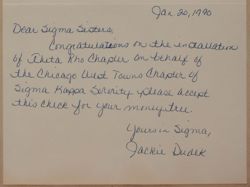 Jan 20, 1990
Dear Sigma Sisters,
Congratulations on the installation
of Theta Rho Chapter on behalf of
the Chicago West Towns Chapter of
Sigma Kappa Sorority. Please accept
this check for your money tree.
Yours in Sigma,
Jackie Dudek